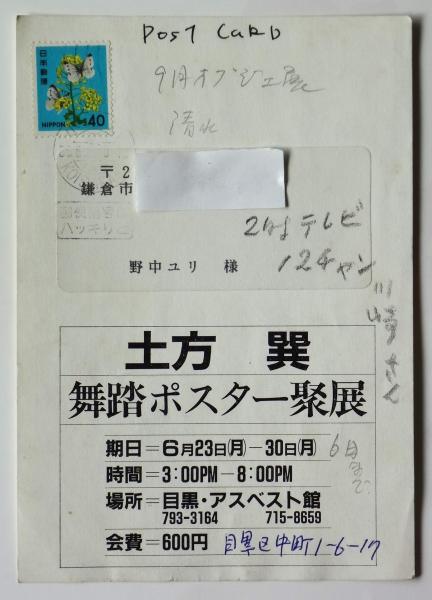 POST CARD
日本郵便
NIPPON 40
9月オブジェ展
清水
〒2
鎌倉市
野中ユリ 様
2時テレビ
12チャン
川崎さん
土方 巽
舞踏ポスター聚展
期日=6月23日(月)―30日(月)
6日まで
時間=3:00PM―8:00PM
場所=目黒・アスベスト館
793-3164 715-8659
会費=600円 目黒区中町1-6-17